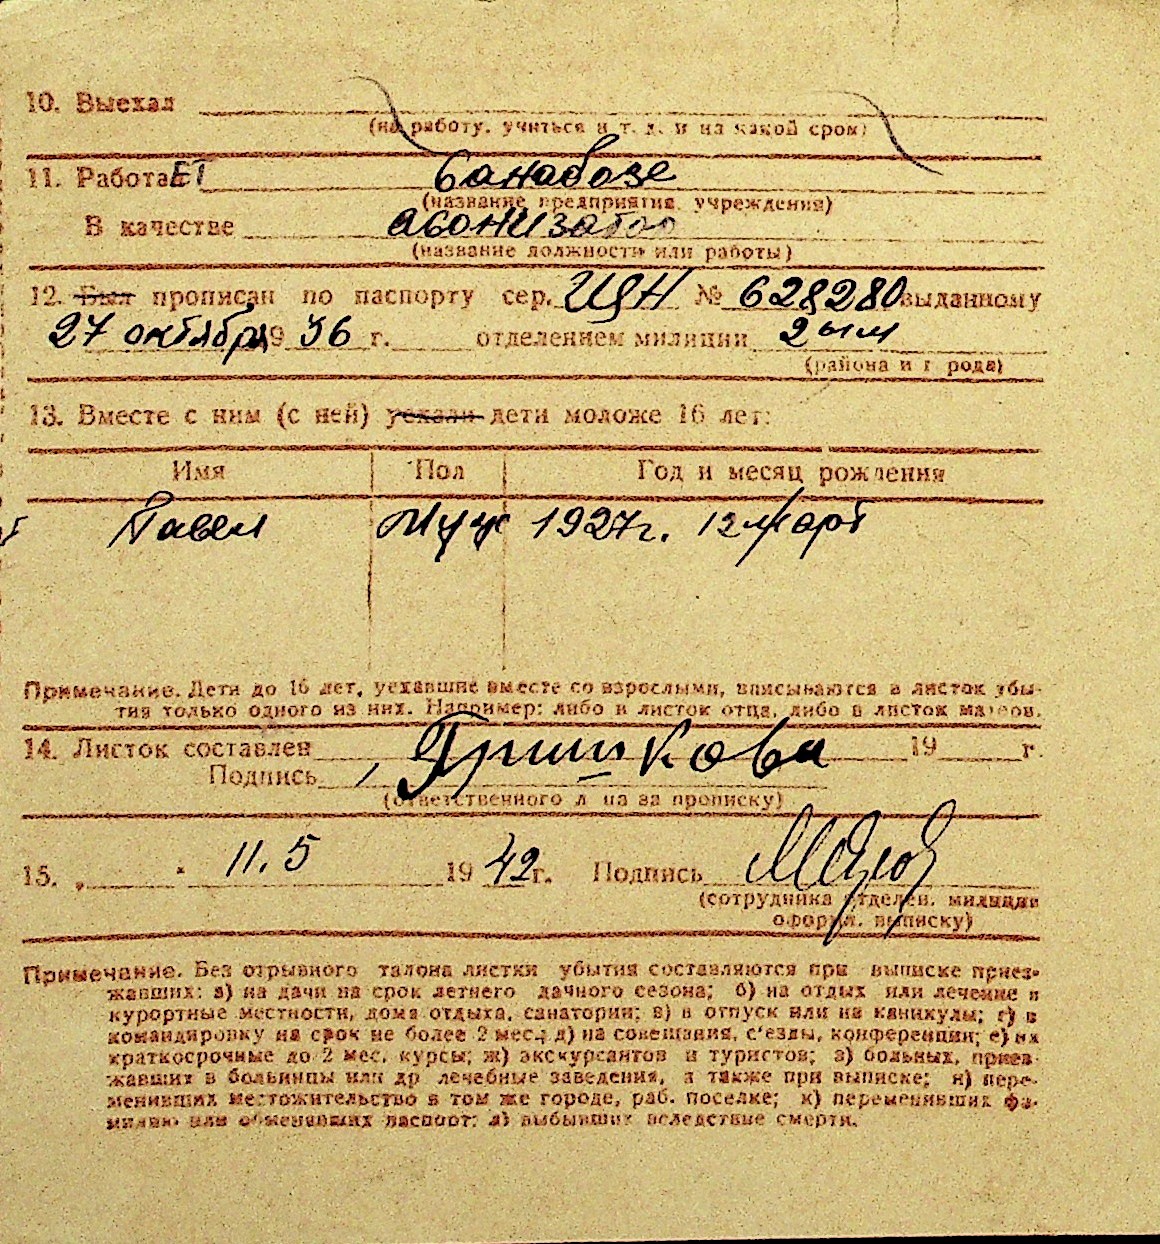 10. Выехал
(на работу, учиться и т. д. и на какой срок)
11. Работает
(название предприятия, учреждения)
В качестве
(название должности или работы)
12. Был прописан по паспорту сер. ЦЯН № 628280 выданному
27 октября 1936 г. отделением милиции
(района и города)
13. Вместе с ним (с ней) уехали дети моложе 16 лет:
Имя Пол Год и месяц рождения
Павел Муж 1927 г. 12 март
Примечание. Дети до 16 лет, уехавшие вместе со взрослыми, вписываются в листок убы-
тия только одного из них. Например: либо в листок отца, либо в листок матери.
14. Листок составлен 19 г.
Подпись Гришкова
(ответственного лица за прописку)
15. „ " 11.5 1942 г. Подпись
(сотрудника отделен. милиции
оформ. выписку)
Примечание. Без отрывного талона листки убытия составляются при выписке приез-
жавших: а) на дачи на срок летнего дачного сезона; б) на отдых или лечение в
курортные местности, дома отдыха, санатории; в) в отпуск или на каникулы; г) в
командировку на срок не более 2 мес.; д) на совещания, с'езды, конференции; е) на
краткосрочные до 2 мес. курсы; ж) экскурсантов и туристов; з) больных, приез-
жавших в больницы или др. лечебные заведения, а также при выписке; и) пере-
менивших местожительство в том же городе, раб. поселке; к) переменивших фа-
милию или обменявших паспорт; л) выбывших вследствие смерти.